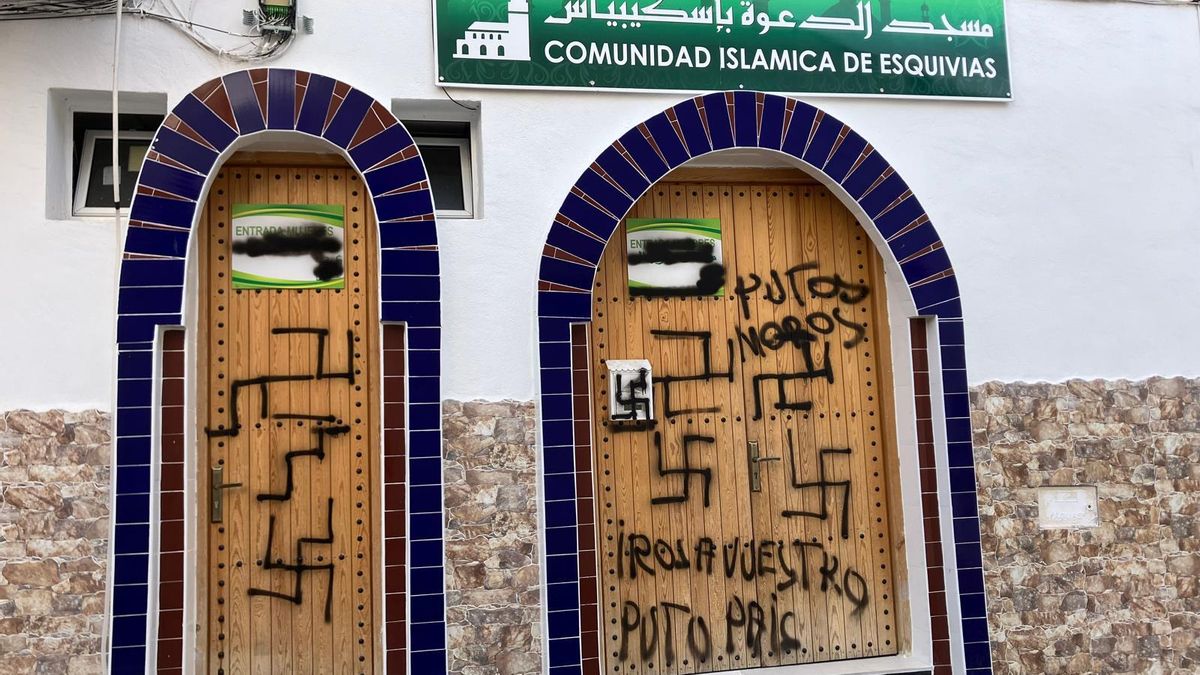 مسجد الدعوة بإسكيبياس
COMUNIDAD ISLAMICA DE ESQUIVIAS
ENTRADA MUJERES
ENTRADA
PUTOS
MOROS
¡IROS A VUESTRO
PUTO PAIS